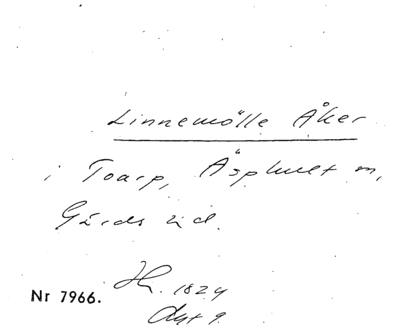 Linnemölle Åker
i Toarp, Äsphult sn,
Gärds hd.
Nr 7966.
Hr. 1824
Akt 9.